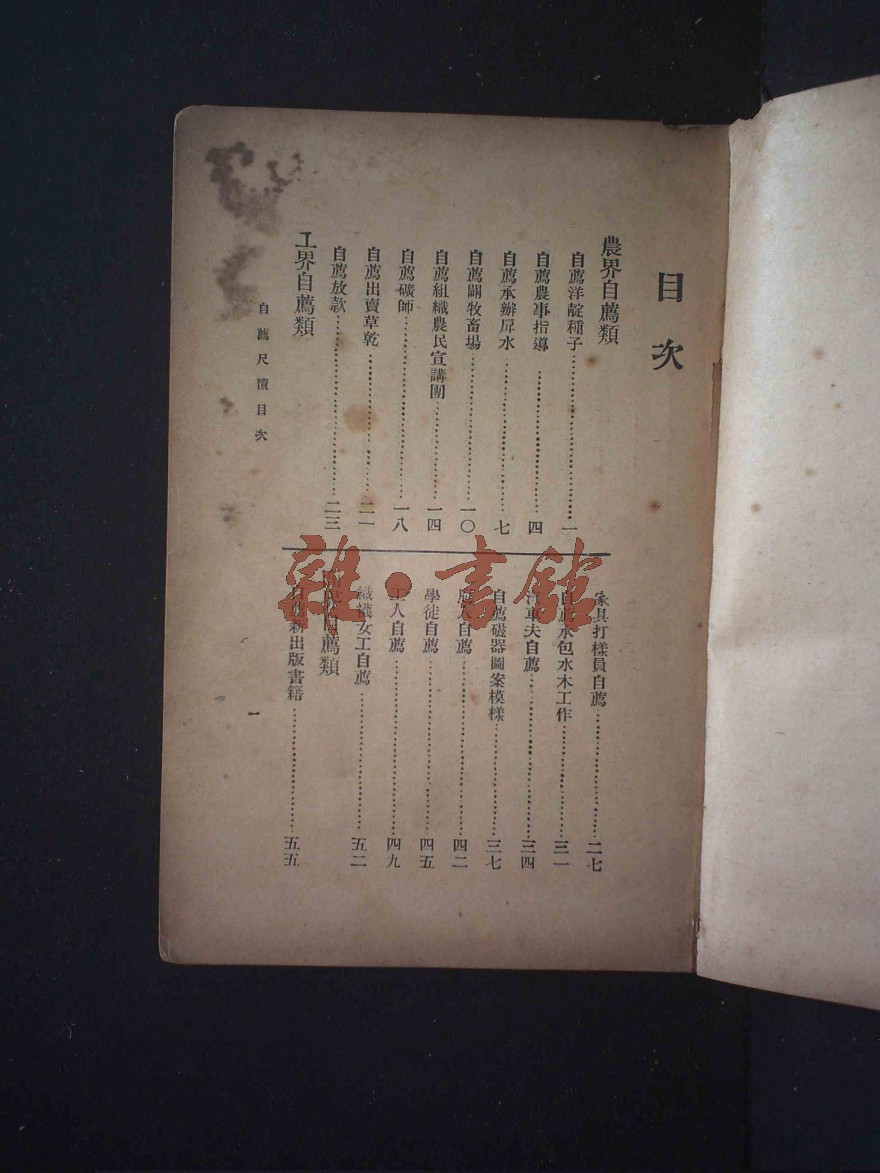 目次
農界自薦類
自薦洋靛種子……一
自薦農事指導……四
自薦承辦戽水……七
自薦開牧畜場……一〇
自薦組織農民宣講團……一四
自薦礦師……一八
自薦出賣草乾……二一
自薦放款……二三
工界自薦類
家具打樣員自薦……二七
自薦承包水木工作……三一
車夫自薦……三四
自薦磁器圖案模樣……三七
人自薦……四二
學徒自薦……四五
工人自薦……四九
織襪女工自薦……五二
自薦類
新出版書籍……五五
自薦尺牘目次
一
雜·書館